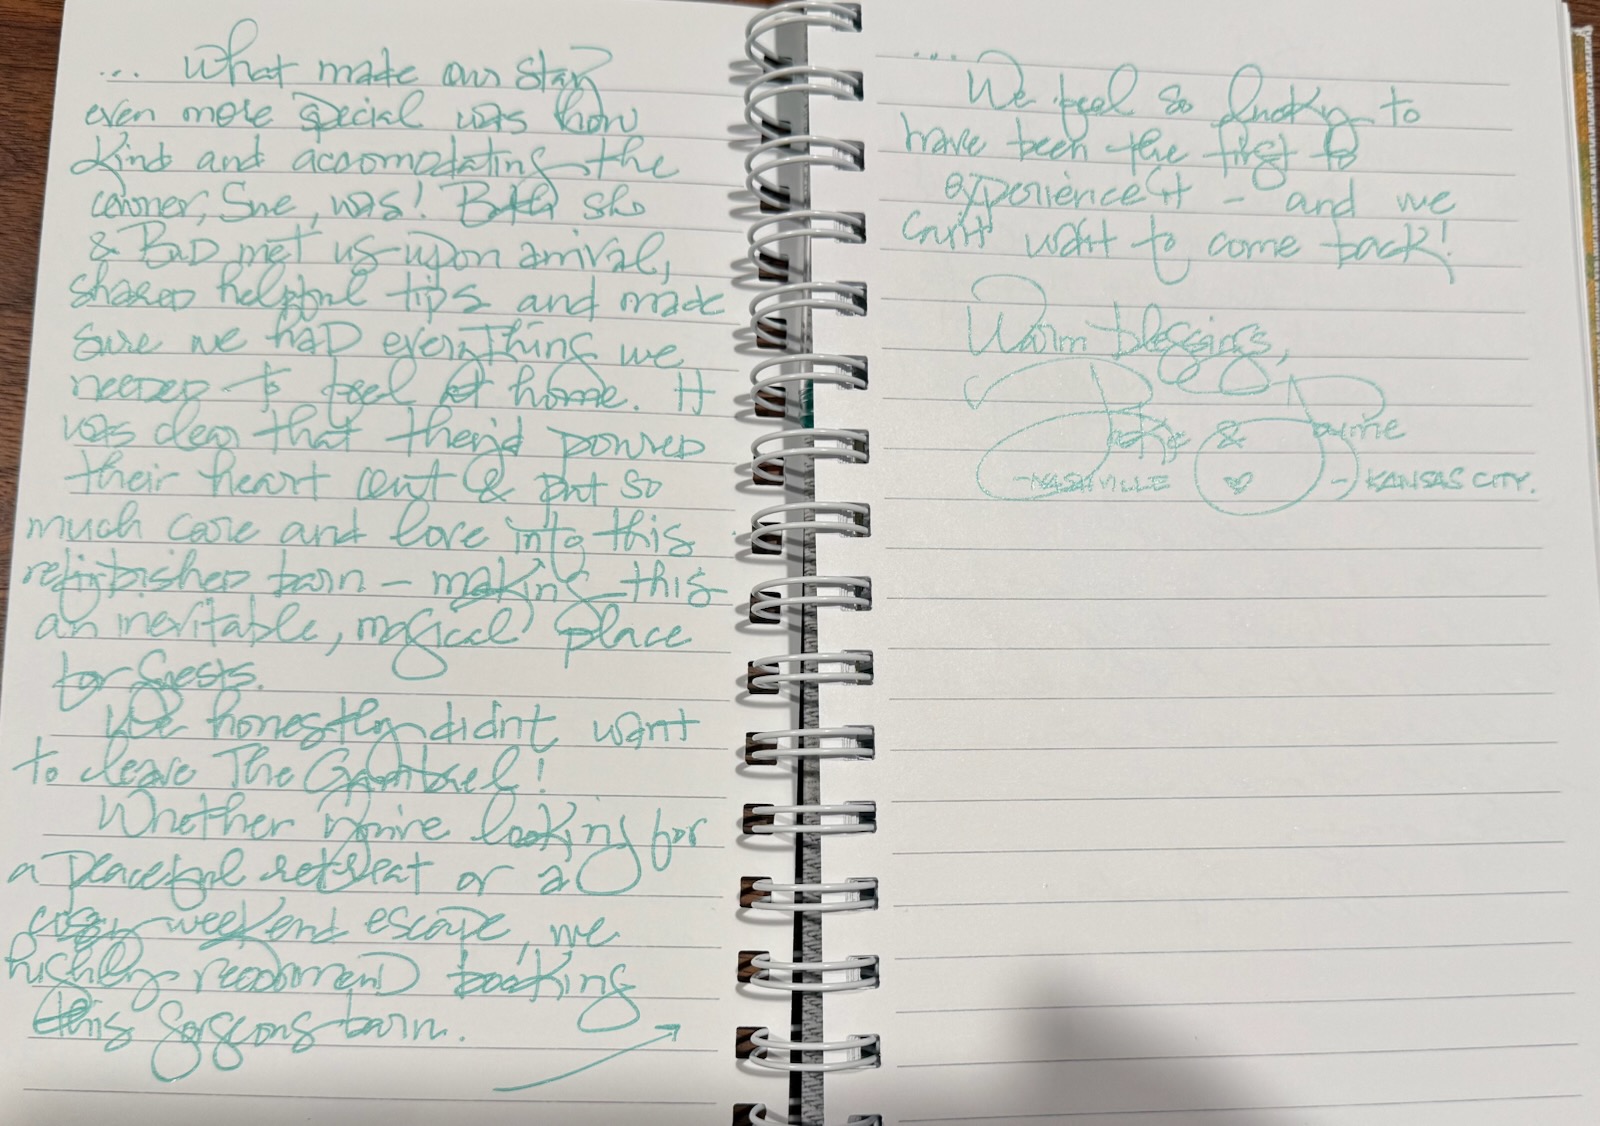 ... What made our stay
even more special was how
kind and accomodating the
owner, Sue, was! Both she
& Bud met us upon arrival,
shared helpful tips and made
sure we had everything we
needed to feel at home. It
was clear that they'd poured
their heart out & put so
much care and love into this
refurbished barn — making this
an inevitable, magical place
for Guests.
We honestly didn't want
to leave The Gambrel!
Whether you're looking for
a peaceful retreat or a
cozy weekend escape, we
highly recommend booking
this gorgeous barn.
....
We feel so lucky to
have been the first to
experience it - and we
can't wait to come back!
Warm blessings,
& Jayme
-NASHVILLE ♡ - KANSAS CITY.